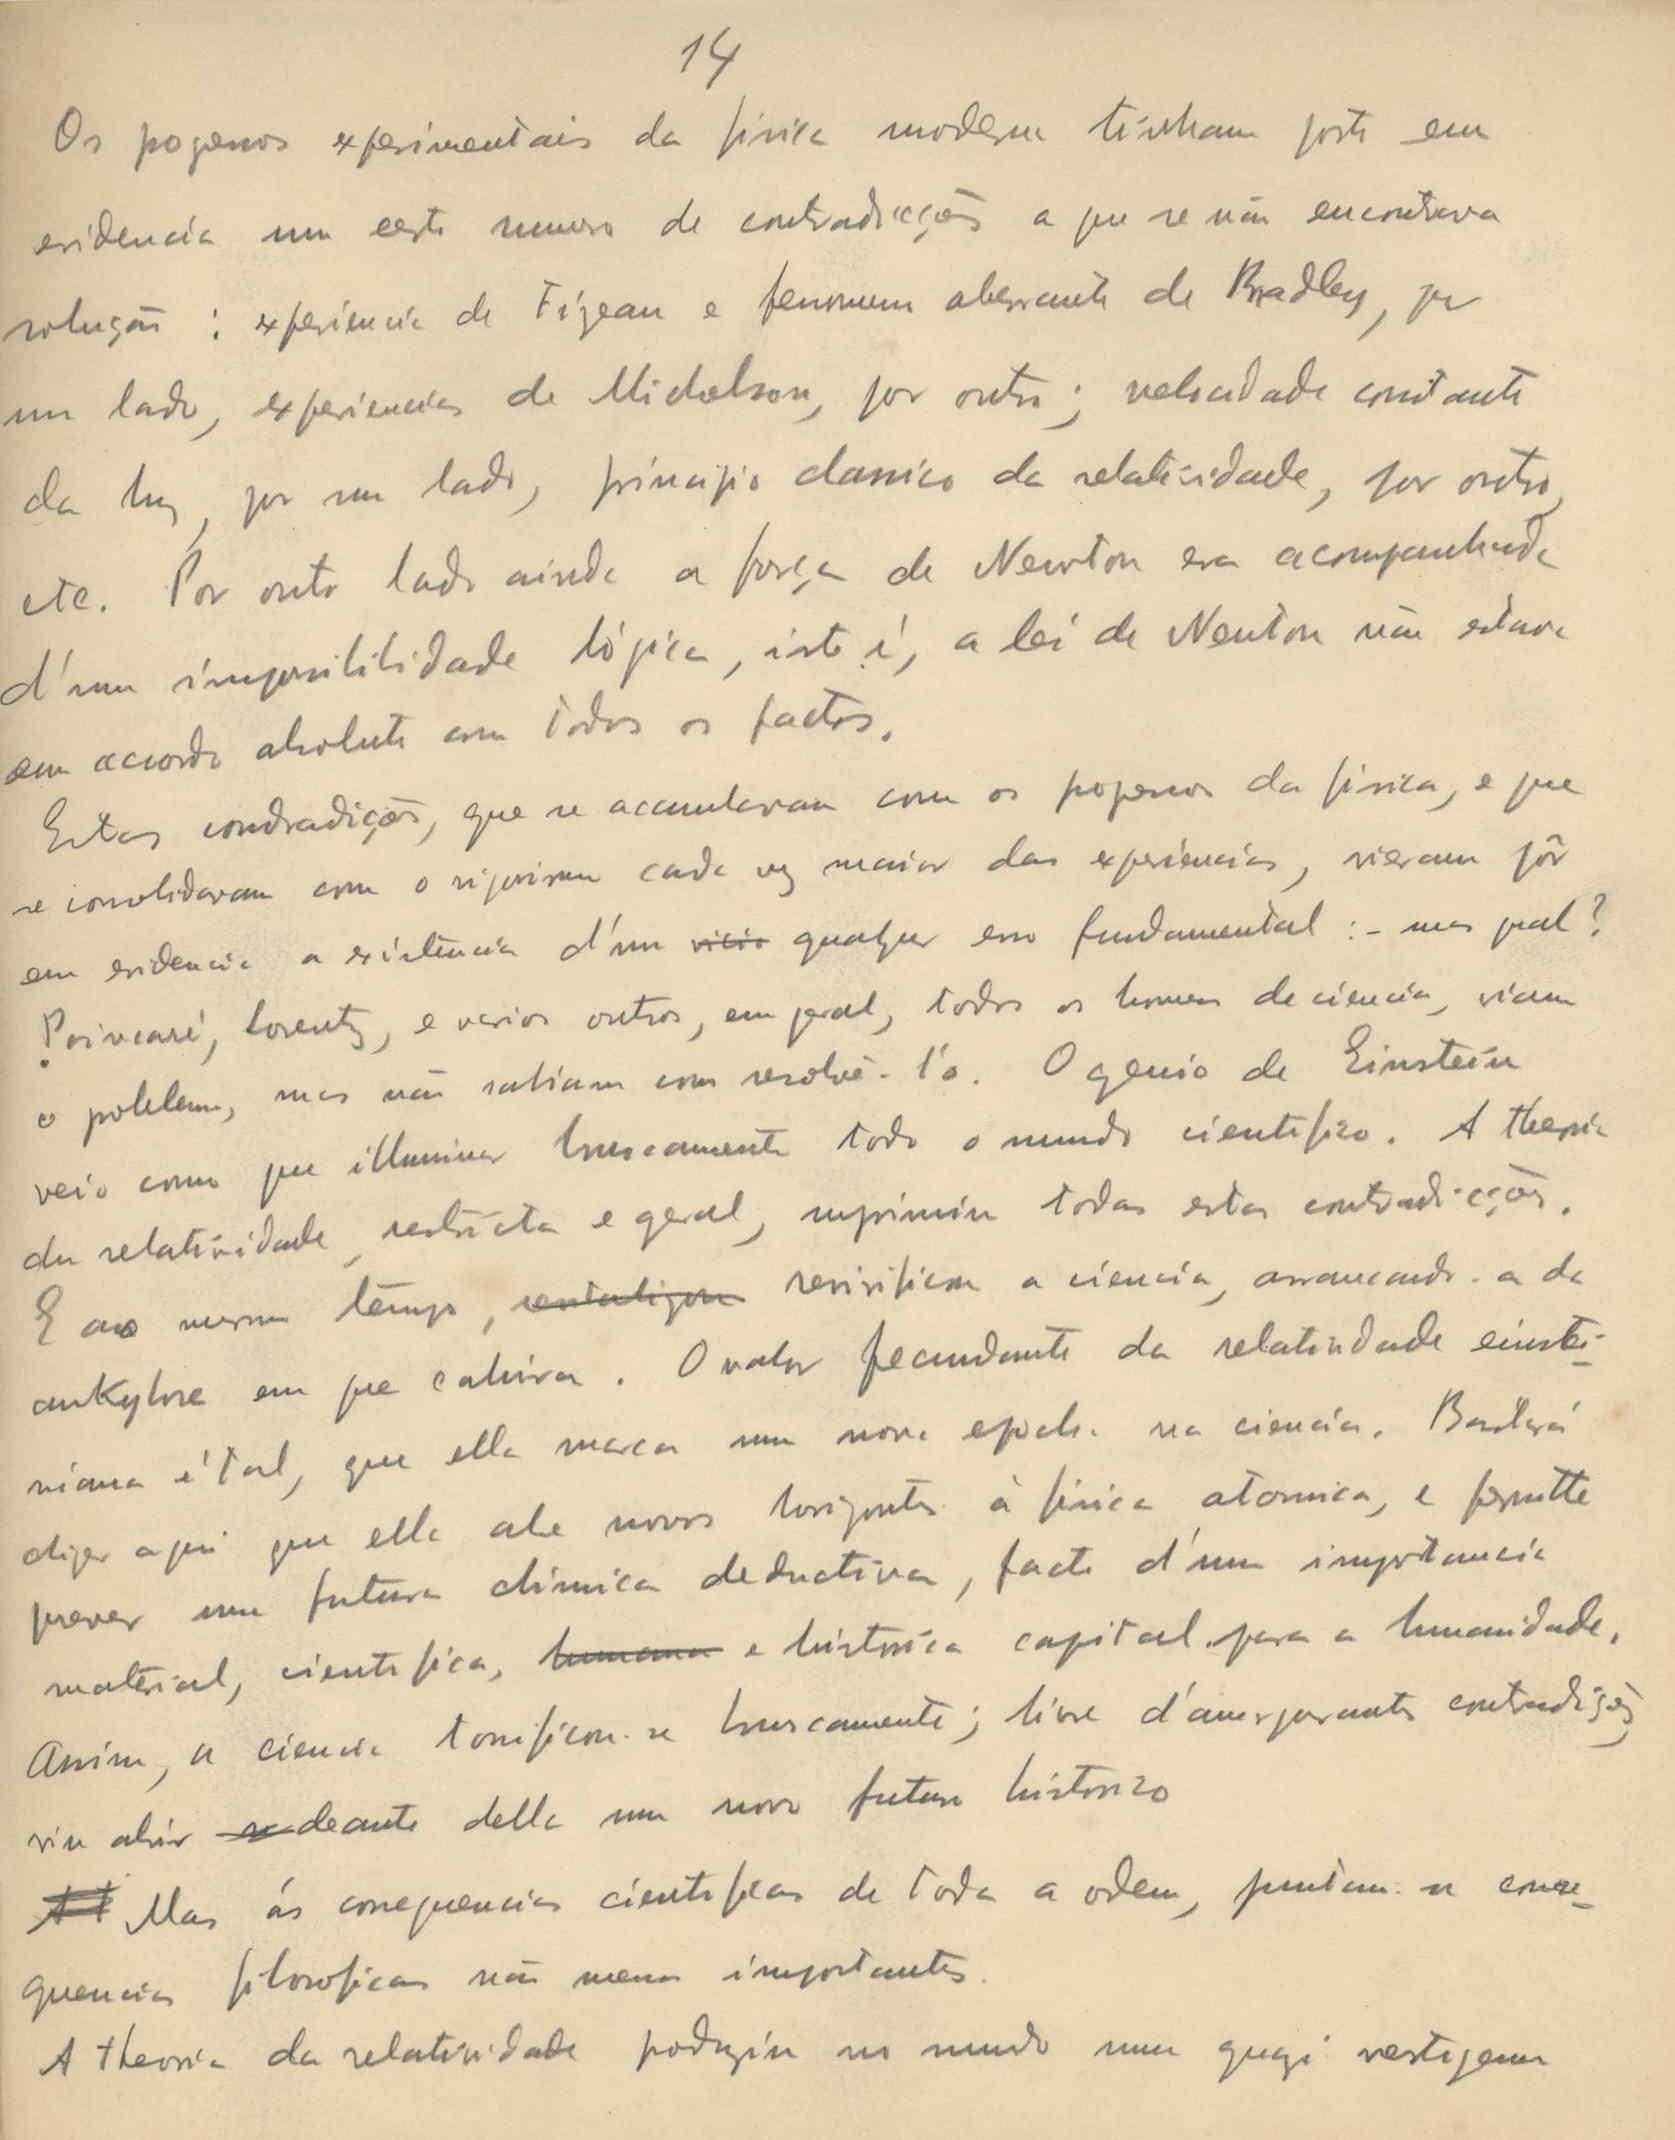 14
Os progressos experimentais da fisica moderna tinham posto em
evidencia um certo numero de contradicções a que se não encontrava
solução : experiencia de Fizeau e fenomeno aberrante de Bradley, por
um lado, experiencias de Michelson, por outro ; velocidade constante
da luz, por um lado, principio classico da relatividade, por outro,
etc. Por outro lado ainda a força de Newton era acompanhada
d'uma impossibilidade lógica, isto é, a lei de Newton não estava
em accordo absoluto com todos os factos.
Estas contradições, que se accumularam com os progressos da fisica, e que
se consolidaram com o rigorismo cada vez maior das experiencias, vieram pôr
em evidencia a existencia d'um vicio qualquer erro fundamental : - mas qual?
Poincaré, Lorentz, e varios outros, em geral, todos os homens de ciencia, viam
o problema, mas não sabiam como resolvê-l'o. O genio de Einstein
veio como que illuminar bruscamente todo o mundo cientifico. A theoria
da relatividade, restricta e geral, suprimiu todas estas contradicções.
E ao mesmo tempo, revitalizou revivificou a ciencia, arrancando-a da
ankylose em que cahira. O valor fecundante da relatividade einstei-
niana é tal, que ella marca uma nova epocha na ciencia. Bastará
dizer aqui que ella abre novos horizontes à fisica atomica, e permitte
prever uma futura chimica deductiva, facto d'uma importancia
material, cientifica, humana e historica capital para a humanidade.
Assim, a ciencia tonificou-se bruscamente ; livre d'amargurantes contradições,
viu abrir se deante della um novo futuro historico
Mas ás consequencias cientificas de toda a ordem, juntam-se conse-
quencias filosoficas não menos importantes.
A theoria da relatividade produziu no mundo uma quazi vertigem